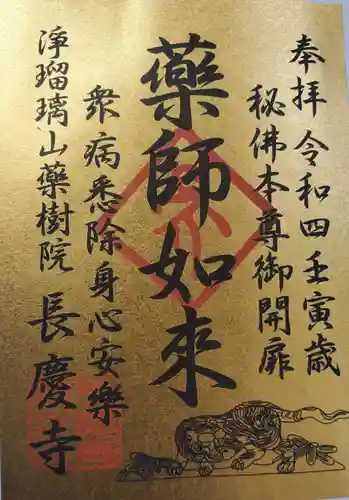 奉拝 令和四壬寅歳
秘佛本尊御開扉
藥師如來
衆病悉除身心安樂
浄瑠璃山藥樹院 長慶寺